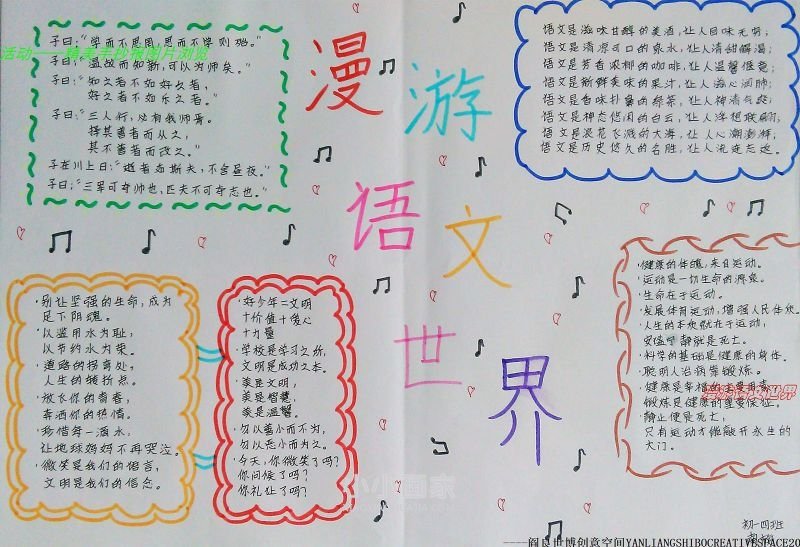 子曰："学而不思罔，思而不学则殆。"
活动——精美手抄报图片浏览
子曰："温故而知新，可以为师矣。"
子曰：知之者不如好之者，
好之者不如乐之者。"
子曰："三人行，必有我师焉。
择其善者而从之，
其不善者而改之。"
子在川上曰："逝者如斯夫，不舍昼夜。"
子曰："三军可夺帅也，匹夫不可夺志也。"
漫游
语文
世界
语文是滋味甘醇的美酒，让人回味无穷；
语文是清凉可口的泉水，让人清甜解渴；
语文是芳香浓郁的咖啡，让人温馨惬意；
语文是新鲜美味的果汁，让人滋心润肺；
语文是香味扑鼻的绿茶，让人神清气爽；
语文是神态悠闲的白云，让人浮想联翩；
语文是浪花飞溅的大海，让人心潮澎湃；
语文是历史悠久的名胜，让人流连忘返。
·别让坚强的生命，成为
足下阴魂。
·以滥用水为耻，
以节约水为荣。
·道路的拐弯处，
人生的转折点。
·放飞你的青春，
奔洒你的热情。
·珍惜每一滴水，
让地球妈妈不再哭泣。
·微笑是我们的语言，
文明是我们的信念。
·好少年=文明
+价值+爱心
+力量
·学校是学习之所，
文明是成功之本。
·美是文明，
美是智慧，
美是温馨。
·勿以善小而不为，
勿以恶小而为之。
·今天，你微笑了吗？
你问候了吗？
你礼让了吗？
·健康的体魄，来自运动。
·运动是一切生命的源泉。
·生命在于运动。
·发展体育运动，增强人民体质。
·人生的本质就在于运动，
安谧宁静就是死亡。
·科学的基础是健康的身体。
·聪明人治病靠锻炼。
·健康是幸福的主要因素，
漫游语文世界
锻炼是健康的重要保证。
·静止便是死亡，
只有运动才能敲开永生的
大门。
小小画家
初一四班
----阎良世博创意空间YANLIANGSHIBOCREATIVESPACE20